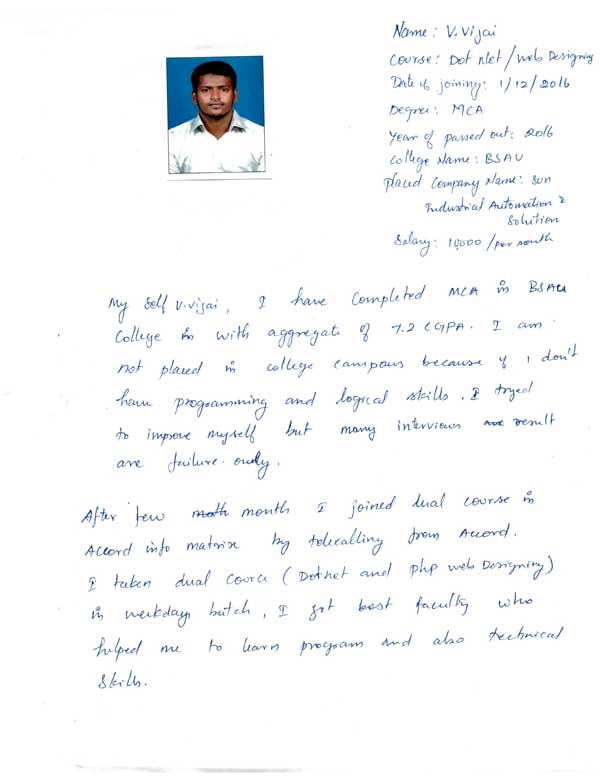 Name: V.Vijai
Course: Dot Net/Web Designing
Date of joining: 1/12/2016
Degree: MCA
Year of passed out: 2016
College Name: BSAU
Placed Company Name: Sun
Industrial Automation &
Solution
Salary: 10,000/per month
My Self V.Vijai, I have completed MCA in BSAU
College in with aggregate of 7.2 CGPA. I am
not placed in college campous because of I don't
have programming and logical skills. I tryed
to improve myself but many interviews result
are failure only.
After few month I joined dual course in
Accord info matrix by telecalling from Accord.
I taken dual Cource (Dotnet and php web Designing)
in weekdays batch, I got best faculty who
helped me to learn program and also technical
Skills.